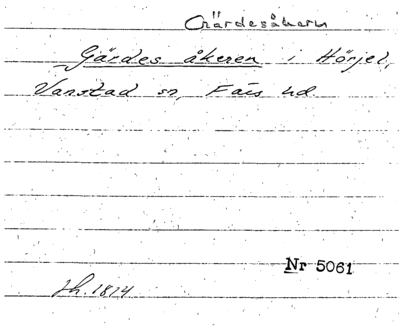 Gärdesåkern
Gärdes åkeren i Hörjel,
Vanstad sn, Färs hd
Nr 5061
sh. 1814